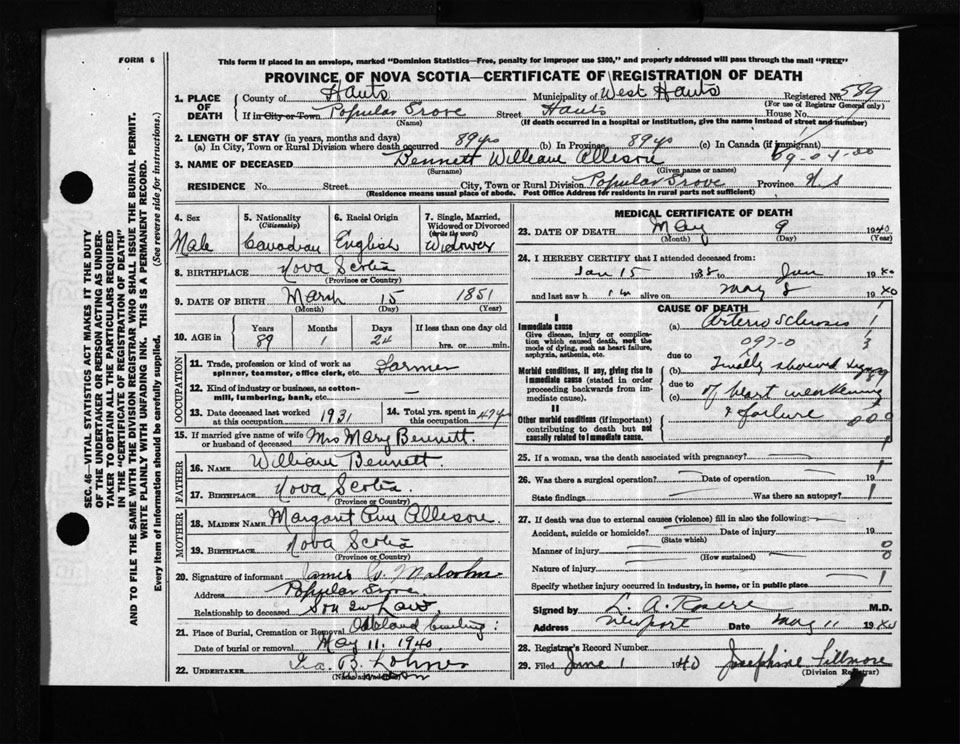 FORM 6
This form if placed in an envelope, marked "Dominion Statistics—Free, penalty for improper use $300," and properly addressed will pass through the mail "FREE"
PROVINCE OF NOVA SCOTIA—CERTIFICATE OF REGISTRATION OF DEATH
1. PLACE OF DEATH
County of Hants Municipality of West Hants Registered No. 589
(For use of Registrar General only)
If in City or Town Popular Grove Street Hants House No.
(Name) (If death occurred in a hospital or institution, give the name instead of street and number)
2. LENGTH OF STAY (in years, months and days)
(a) In City, Town or Rural Division where death occurred 89 yo (b) In Province 89 yo (c) In Canada (if immigrant)
69-04-00
3. NAME OF DECEASED Bennett William Allison
(Surname) (Given name or names)
RESIDENCE No. Street City, Town or Rural Division Popular Grove Province N S
(Residence means usual place of abode. Post Office Address for residents in rural parts not sufficient)
4. Sex 5. Nationality (Citizenship) 6. Racial Origin 7. Single, Married, Widowed or Divorced (write the word)
Male Canadian English Widower
8. BIRTHPLACE Nova Scotia
(Province or Country)
9. DATE OF BIRTH Marsh 15 1851
(Month) (Day) (Year)
10. AGE in Years Months Days If less than one day old
89 1 24 hrs. or min.
OCCUPATION
11. Trade, profession or kind of work as spinner, teamster, office clerk, etc. Farmer
12. Kind of industry or business, as cotton-mill, lumbering, bank, etc. —
13. Date deceased last worked at this occupation 1931 14. Total yrs. spent in this occupation 47 yo
15. If married give name of wife or husband of deceased Mrs Mary Bennett.
FATHER
16. NAME William Bennett.
17. BIRTHPLACE Nova Scotia.
(Province or Country)
MOTHER
18. MAIDEN NAME Margart Ann Allison.
19. BIRTHPLACE Nova Scotia
(Province or Country)
20. Signature of informant James Malcolm
Address Popular Grove.
Relationship to deceased Son In Law,
21. Place of Burial, Cremation or Removal
Date of burial or removal May 11. 1940.
22. UNDERTAKER Ira. B. Lohnes
(Name and address)
MEDICAL CERTIFICATE OF DEATH
23. DATE OF DEATH May 9 1940
(Month) (Day) (Year)
24. I HEREBY CERTIFY that I attended deceased from:
Jan 15 1938 to Jan 1940
and last saw him alive on May 8 1940
CAUSE OF DEATH
I
Immediate cause
Give disease, injury or complication which caused death, not the mode of dying, such as heart failure, asphyxia, asthenia, etc.
(a) Arterio Sclerosis
097-0
due to
Morbid conditions, if any, giving rise to immediate cause (stated in order proceeding backwards from immediate).
(b) Finally showed signs
due to
(c) of heart weakening
II
Other morbid conditions (if important) contributing to death but not causally related to immediate cause.
& failure
25. If a woman, was the death associated with pregnancy? —
26. Was there a surgical operation? — Date of operation —
State findings — Was there an autopsy? —
27. If death was due to external causes (violence) fill in also the following:—
Accident, suicide or homicide? Date of injury 19
(State which)
Manner of injury
(How sustained)
Nature of injury
Specify whether injury occurred in industry, in home, or in public place
Signed by L. A. M.D.
Address Newport Date May 11 1940
28. Registrar's Record Number
29. Filed June 1 1940 Josephine Fillmore
(Division Registrar)
SEC. 46—VITAL STATISTICS ACT MAKES IT THE DUTY
OF THE UNDERTAKER OR PERSON ACTING AS UNDER-
TAKER TO OBTAIN ALL THE PARTICULARS REQUIRED
IN THE "CERTIFICATE OF REGISTRATION OF DEATH"
AND TO FILE THE SAME WITH THE DIVISION REGISTRAR WHO SHALL ISSUE THE BURIAL PERMIT.
WRITE PLAINLY WITH UNFADING INK. THIS IS A PERMANENT RECORD.
Every item of information should be carefully supplied. (See reverse side for instructions.)